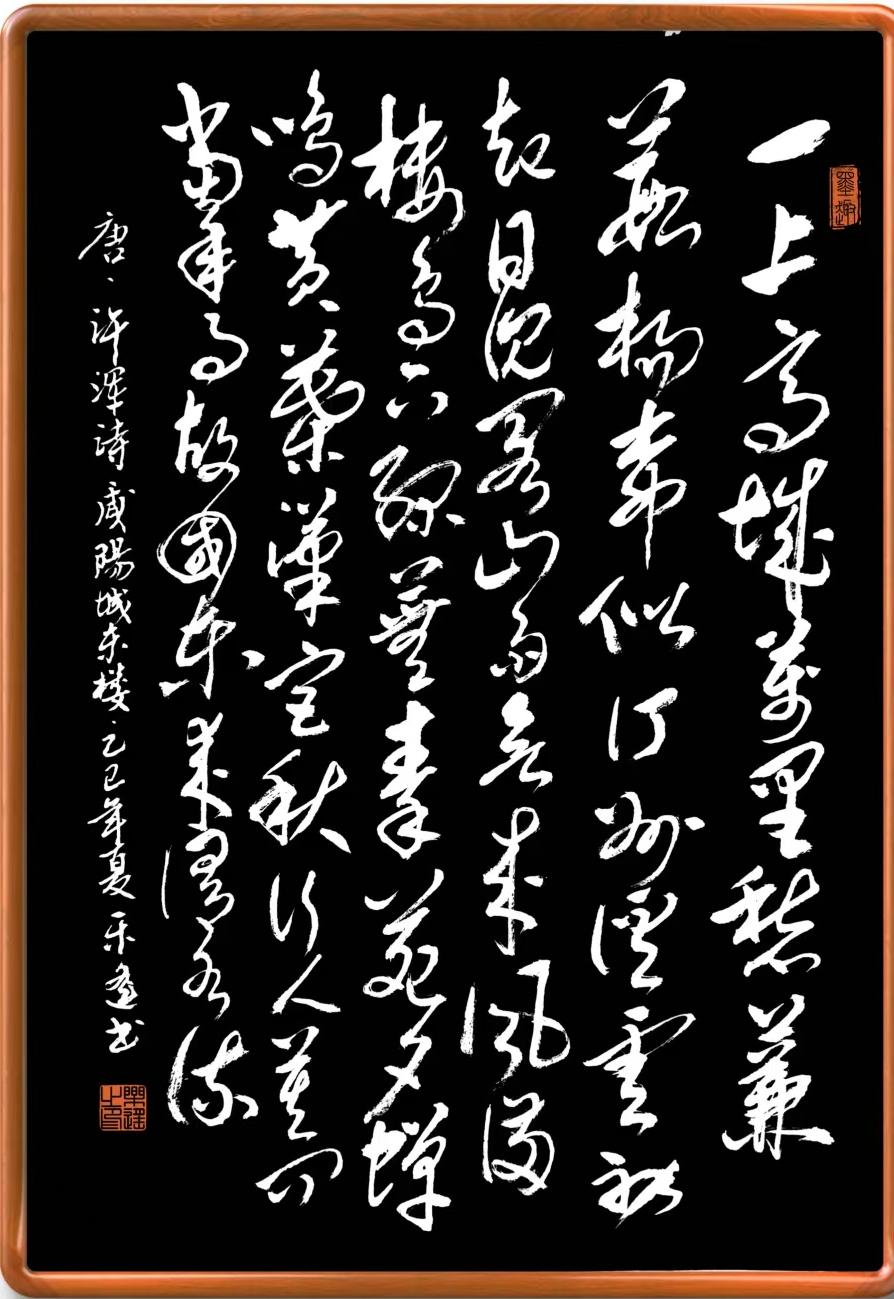 墨趣
一上高城萬里愁蒹
葭楊柳似汀洲溪雲初
起日沉閣山雨欲來風滿
樓鳥下綠蕪秦苑夕蟬
鳴黃葉漢宮秋行人莫問
當年事故國東來渭水流
唐、許渾詩咸陽城东楼、乙巳年夏乐书